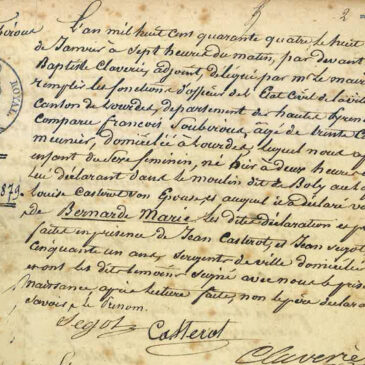 2
L'an mil huit cent quarante quatre le huit
de Janvier à sept heures du matin, par devant
Baptiste Claverie, adjoint, délégué par mr le mair
remplir les fonctions d'officier de l'Etat Civil de la vil
Canton de Lourdes, département des hautes Pyren
Comparu françois Soubirous, agé de trente
meunier, domicilié à Lourdes, lequel nous a
enfant du sexe feminin, né hier à deux heures
lui déclarant dans le moulin dit de Boly au
Louise Casterot son Epouse et auquel il a déclaré vo
de Bernarde Marie les dites déclaration et p
faites en présence de Jean Casterot et Jean Segot
Cinquante un ans, sergents de ville domicilié
et ont les dits témoins Signé avec nous le prés
naissance, après lecture faite, non le père déclara
savoir
ROYAL
879.
Segot
Casterot
Claverie